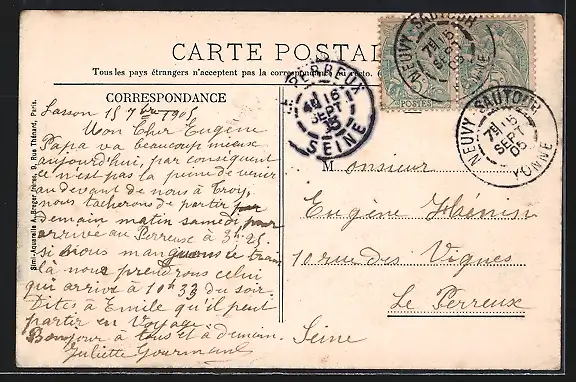 CARTE POSTALE
Tous les pays étrangers n'acceptent pas la correspondance au recto.
CORRESPONDANCE
Simili-Aquarelle A. Breger frères, 9, Rue Thénard, Paris.
15 7bre 1905
Mon Cher Eugène
Papa va beaucoup mieux
aujourd'hui, par conséquent
ce n'est pas la peine de venir
au devant de nous à Troy,
nous tacherons de partir
demain matin samedi, pour
arrive au Perreux à 3h.25.
si nous manquons ce train
là nous prendrons celui
qui arrive à 10h33 du soir
Dites à Emile qu'il peut
partir en Voyage
Bonjour à tous et à demain.
Juliette Gourmand
LE PERREUX
16
SEPT
05
SEINE
NEUVY SAUTOUR
15
SEPT
05
YONNE
POSTES
NEUVY SAUTOUR
7 15
SEPT
05
YONNE
Monsieur
Eugène Hénin
10 rue des Vignes
Le Perreux
Seine